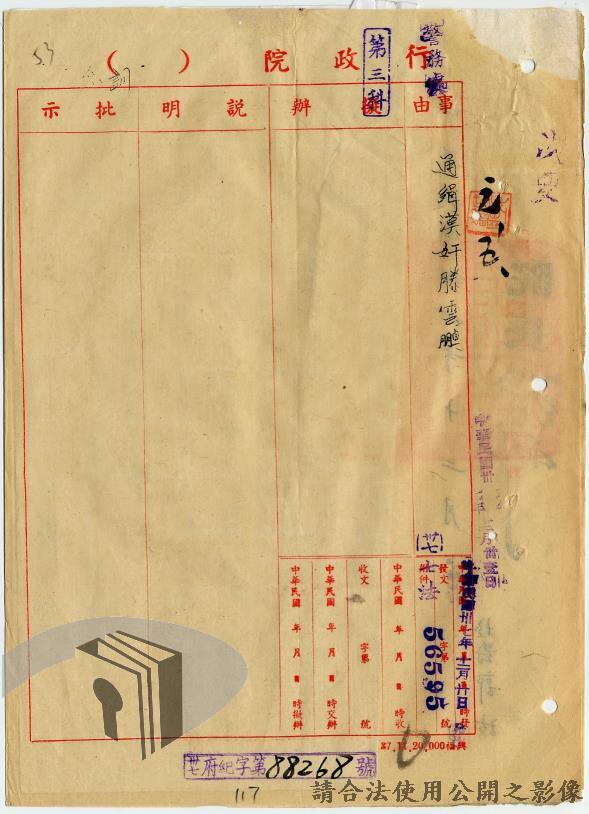 行政院（ ）
警務處
第三科
事由
擬辦
說明
批示
通緝漢奸滕雲鵬
元、五、
法
(卅七)七法
發文
附件
字第56595號
中華民國卅七年十二月廿日
中華民國 年 月 日 時收
收文 字第 號
中華民國 年 月 日 時交辦
中華民國 年 月 日 時擬辦
37.11.20,000
卅七府紀字第88268號
117
53
請合法使用公開之影像